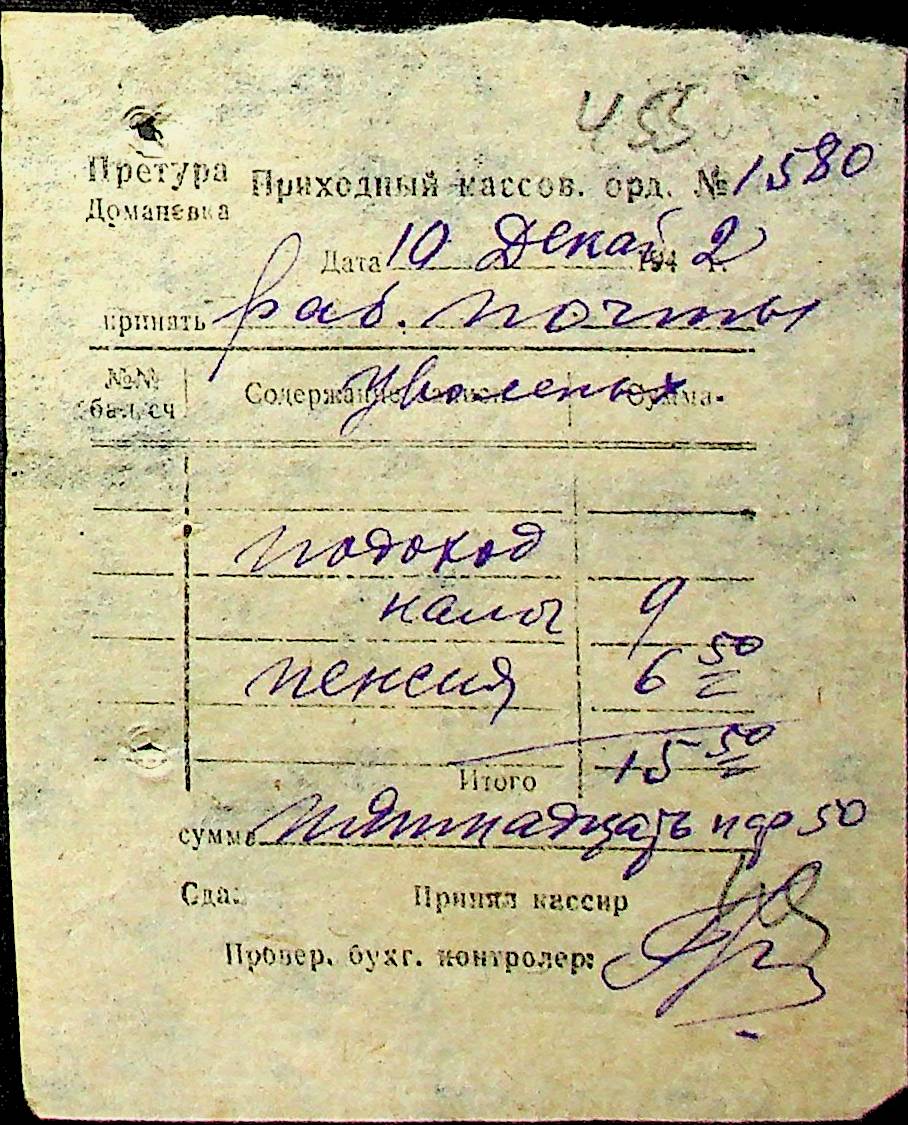 455
Претура Приходный кассов. орд. № 1580
Доманевка
Дата 10 Декаб 194 2 г.
принять раб. почты
уволеных
№№ бал. сч Содержание записи Сумма
подоход
налог 9
пенсия 6 50
Итого 15 50
сумма пятнадцать кар 50
Сдал Принял кассир
Провер. бухг. контролер: